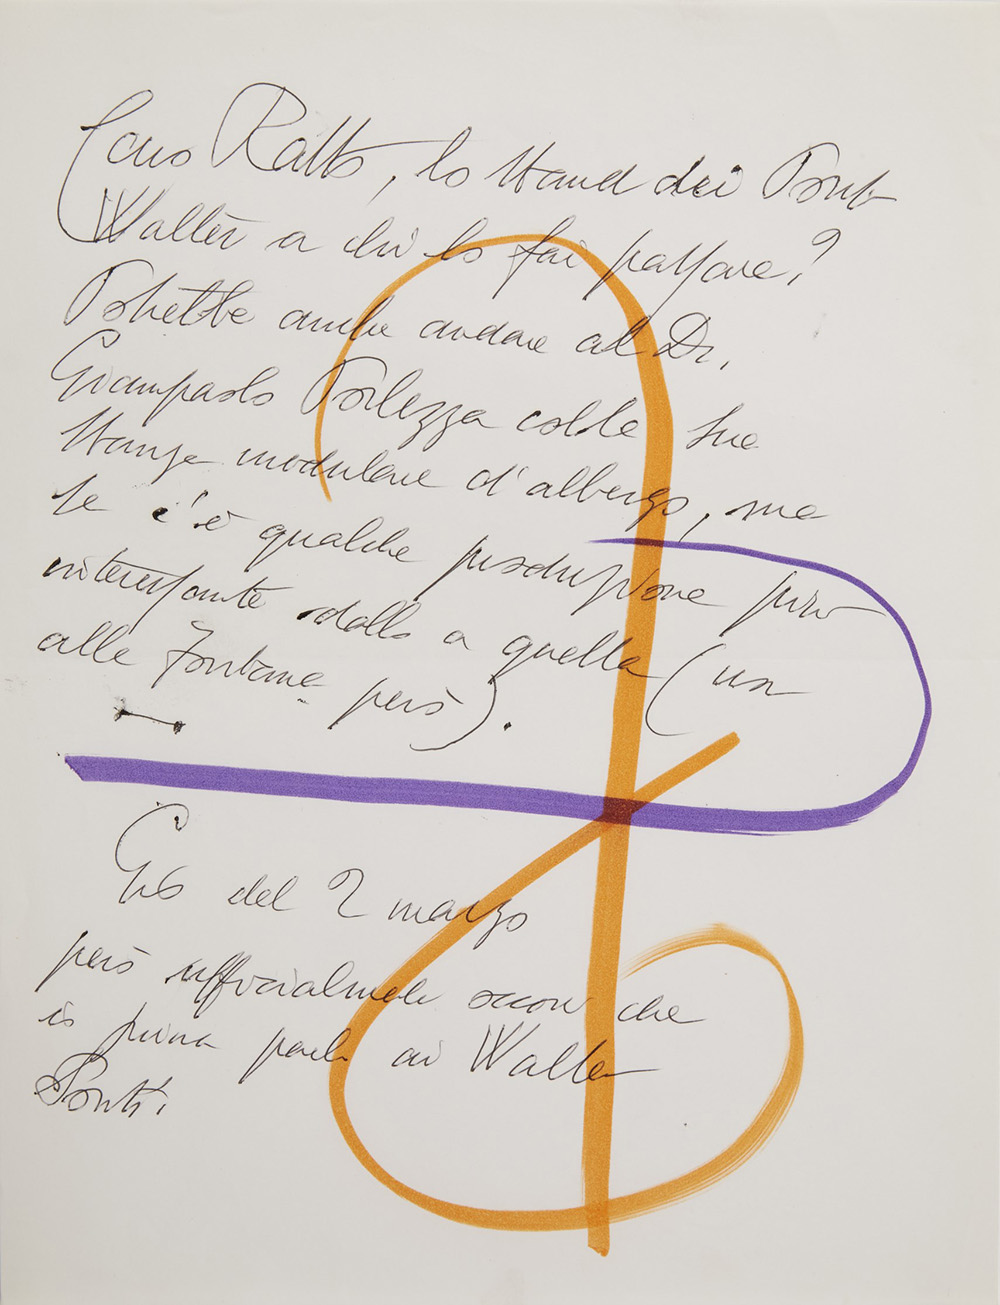 Caro Ratto, lo stand dei Ponti
Walter a chi lo fai passare?
Potrebbe anche andare al Dr.
Giampaolo Porlezza colle sue
stanze modulare d'albergo, ma
se c'è qualche produzione più
interessante dallo a quella (non
alle Fontane però).
Giò del 2 marzo
però ufficialmente occorre che
io prima parli ai Walter
Ponti.